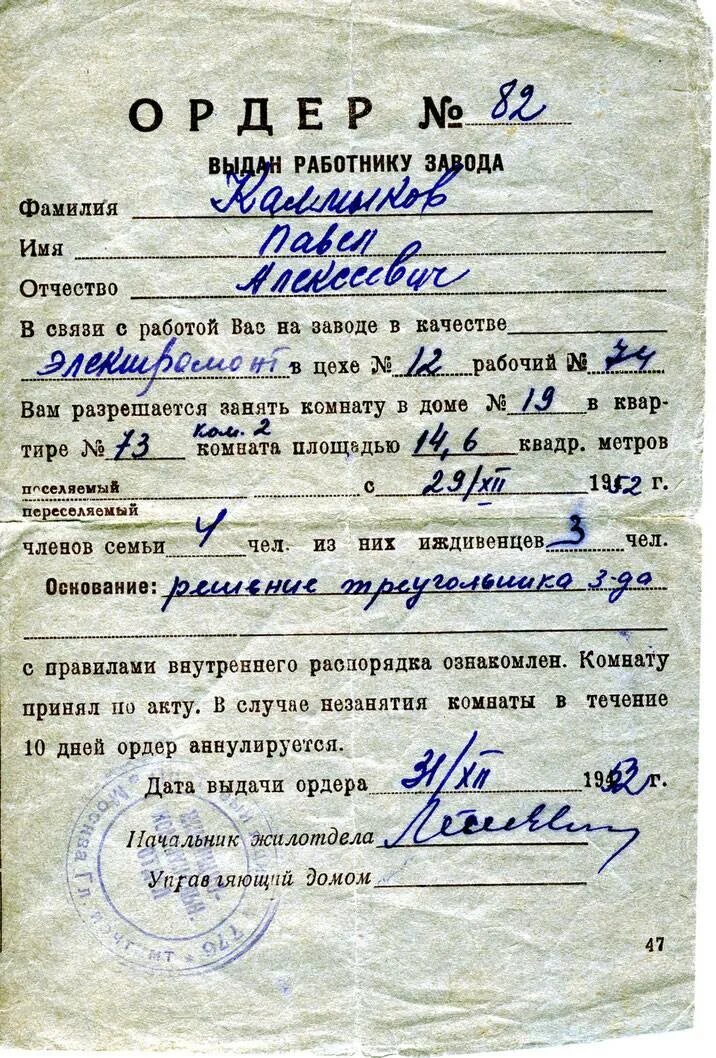 ОРДЕР № 82
ВЫДАН РАБОТНИКУ ЗАВОДА
Фамилия Калмыков
Имя Павел
Отчество Алексеевич
В связи с работой Вас на заводе в качестве
электрамонт в цехе № 12 рабочий № 74
Вам разрешается занять комнату в доме № 19 в квар-
тире № 73 ком. 2 комната площадью 14,6 квадр. метров
поселяемый с 29/XII 1952 г.
переселяемый
членов семьи 4 чел. из них иждивенцев 3 чел.
Основание: решение треугольника з-да
с правилами внутреннего распорядка ознакомлен. Комнату
принял по акту. В случае незанятия комнаты в течение
10 дней ордер аннулируется.
Дата выдачи ордера 31/XII 1953 г.
Начальник жилотдела
Управляющий домом
Москва
776
47